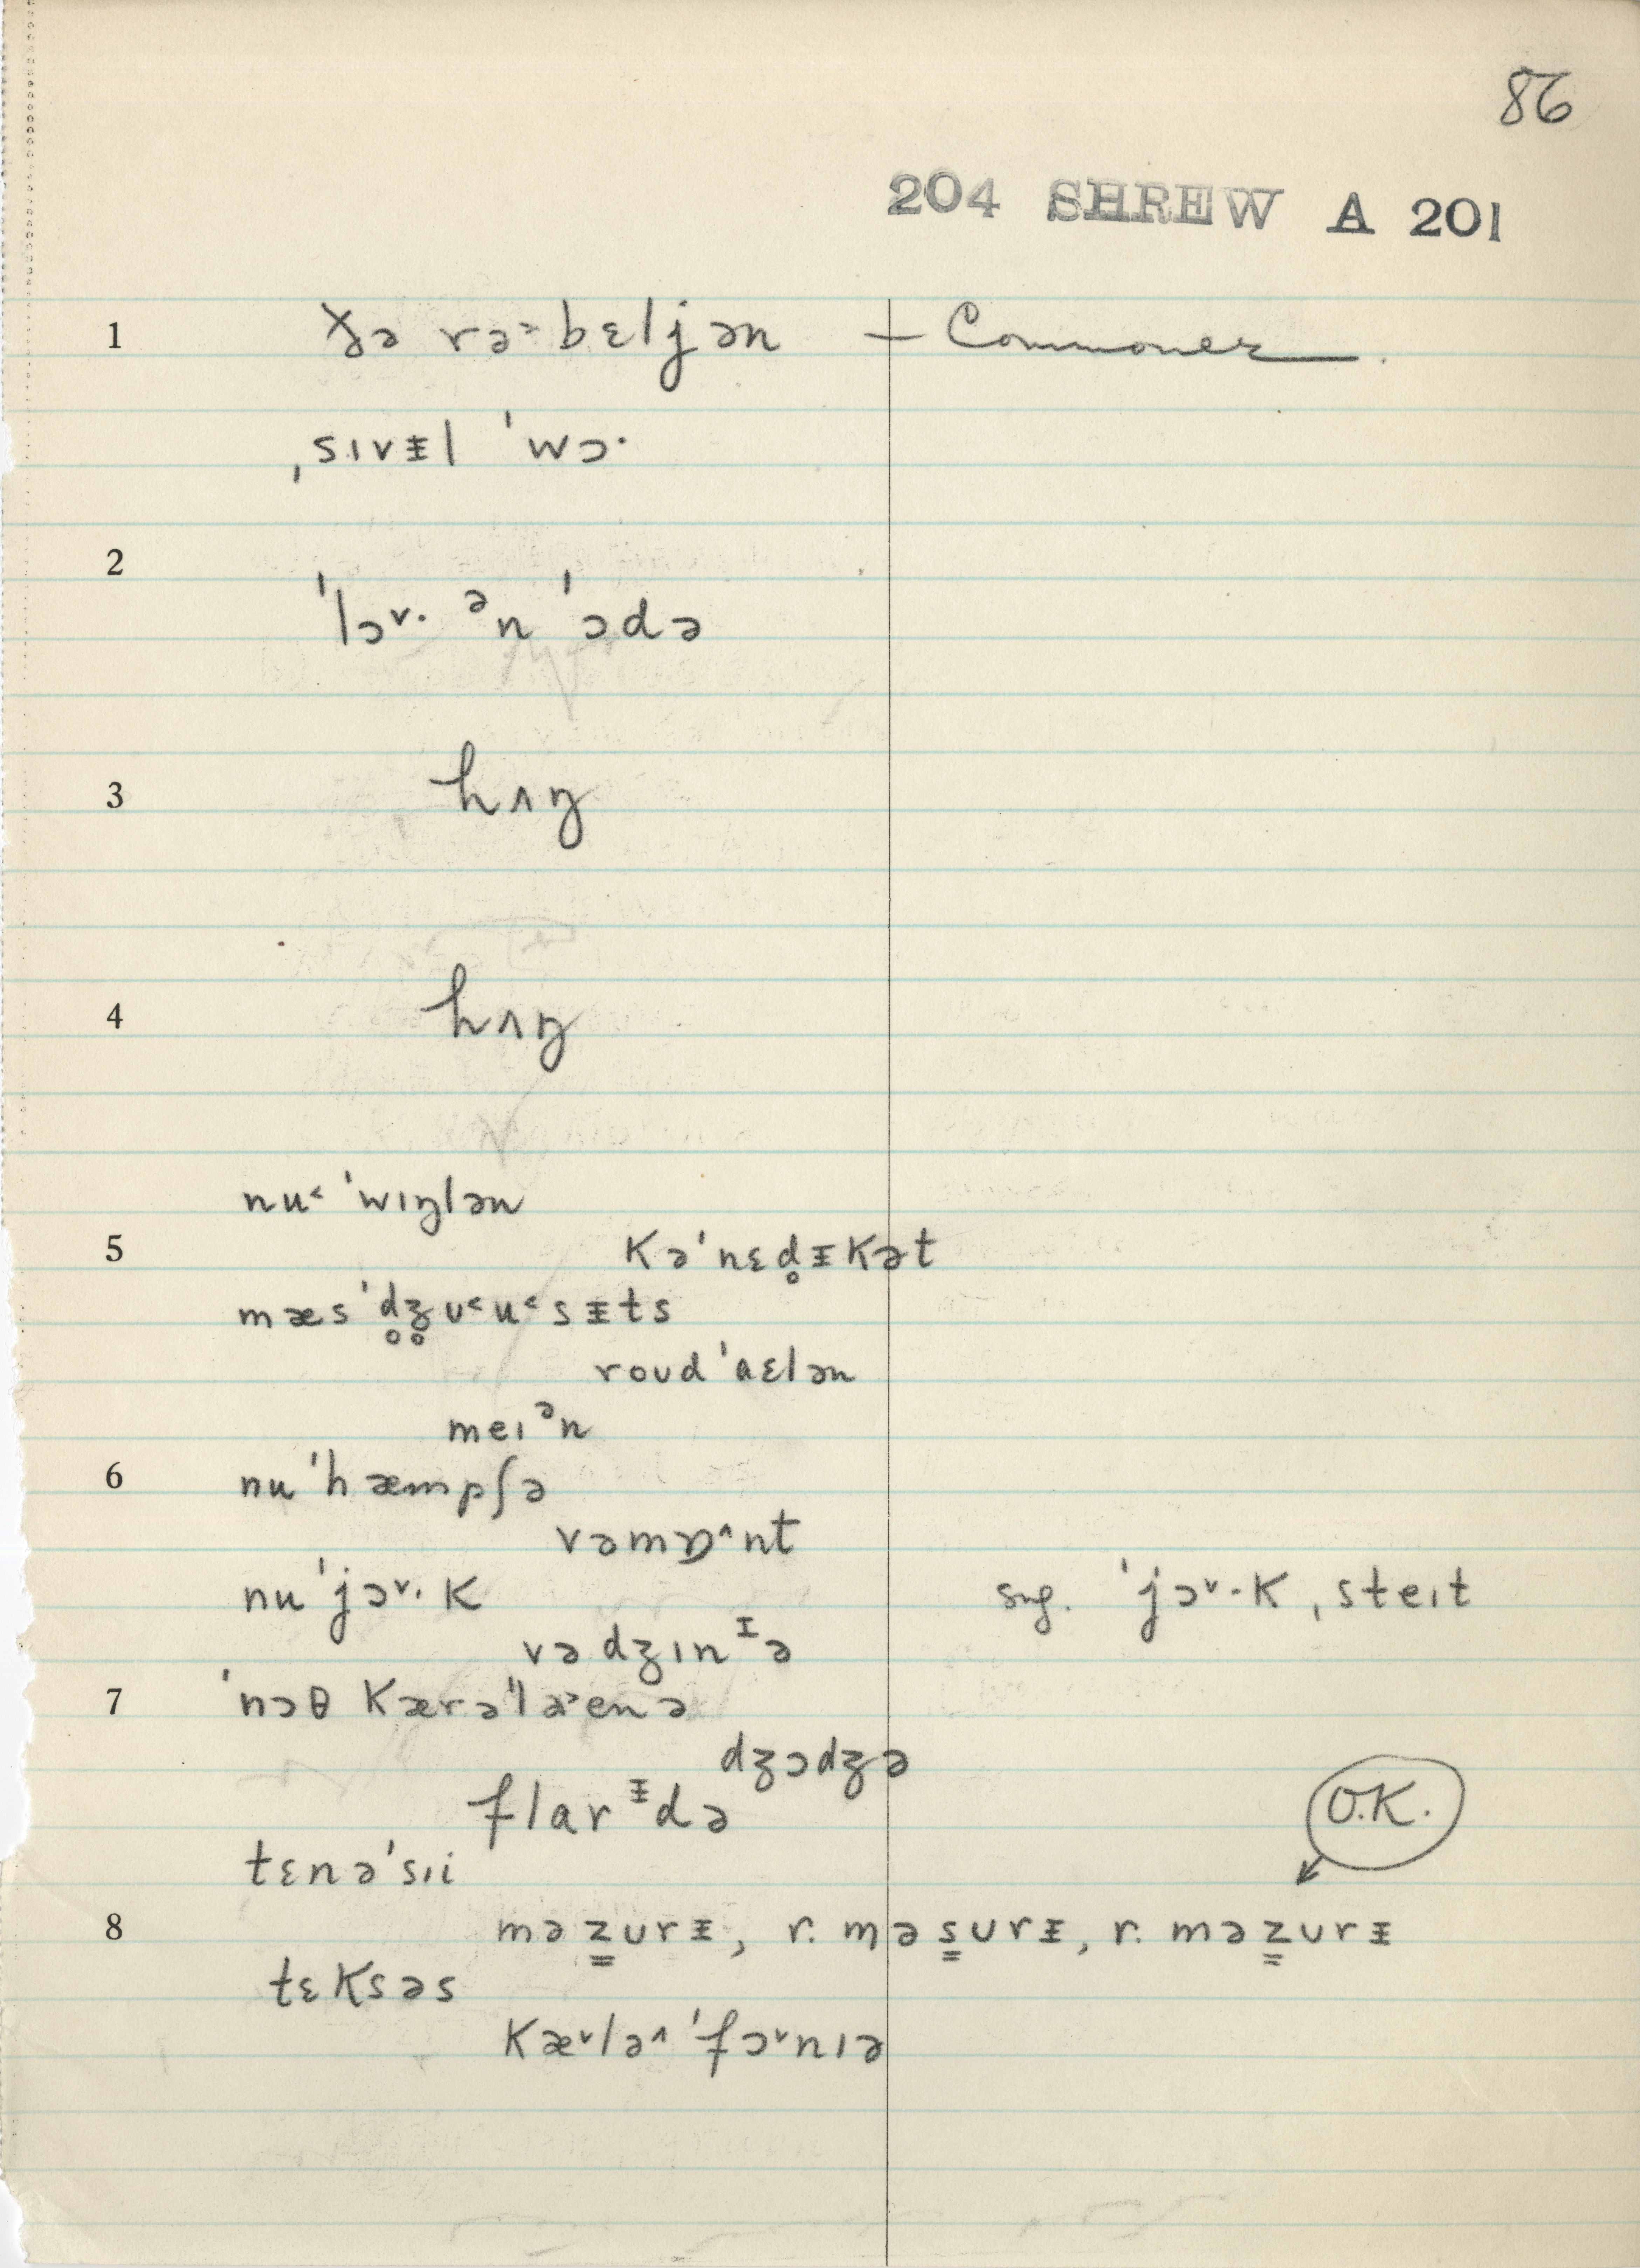 86
204 SHREW A 201
1 ðə rə˃bɛljən — Commoner.
ˌsɪvᵻl ˈwɔ·
2
ˈlɔ˅· ᵊn ˈɔdə
3 hʌŋ
4 hʌŋ
nu˂ ˈwɪŋlən
5 kəˈnɛd̥ᵻkət
mæsˈd̥ʒ̥ʊ˂u˂sᵻts
roʊdˈaɛlən
meɪᵊn
6 nuˈhæmpʃə
vəmɒ˄nt
nuˈjɔ˅·k sug. ˈjɔ˅·k ˌsteɪt
vədʒɪnᶦə
7 ˈnɔθ kærəˈla˃enə
dʒɔdʒə
flarᵻdə O.K.
tɛnəˈsɪi
8 məz̳ʊrᵻ, r. məs̳ʊrᵻ, r. məz̳ʊrᵻ
tɛksəs
kæ˅lə˄ˈfɔ˅nɪə